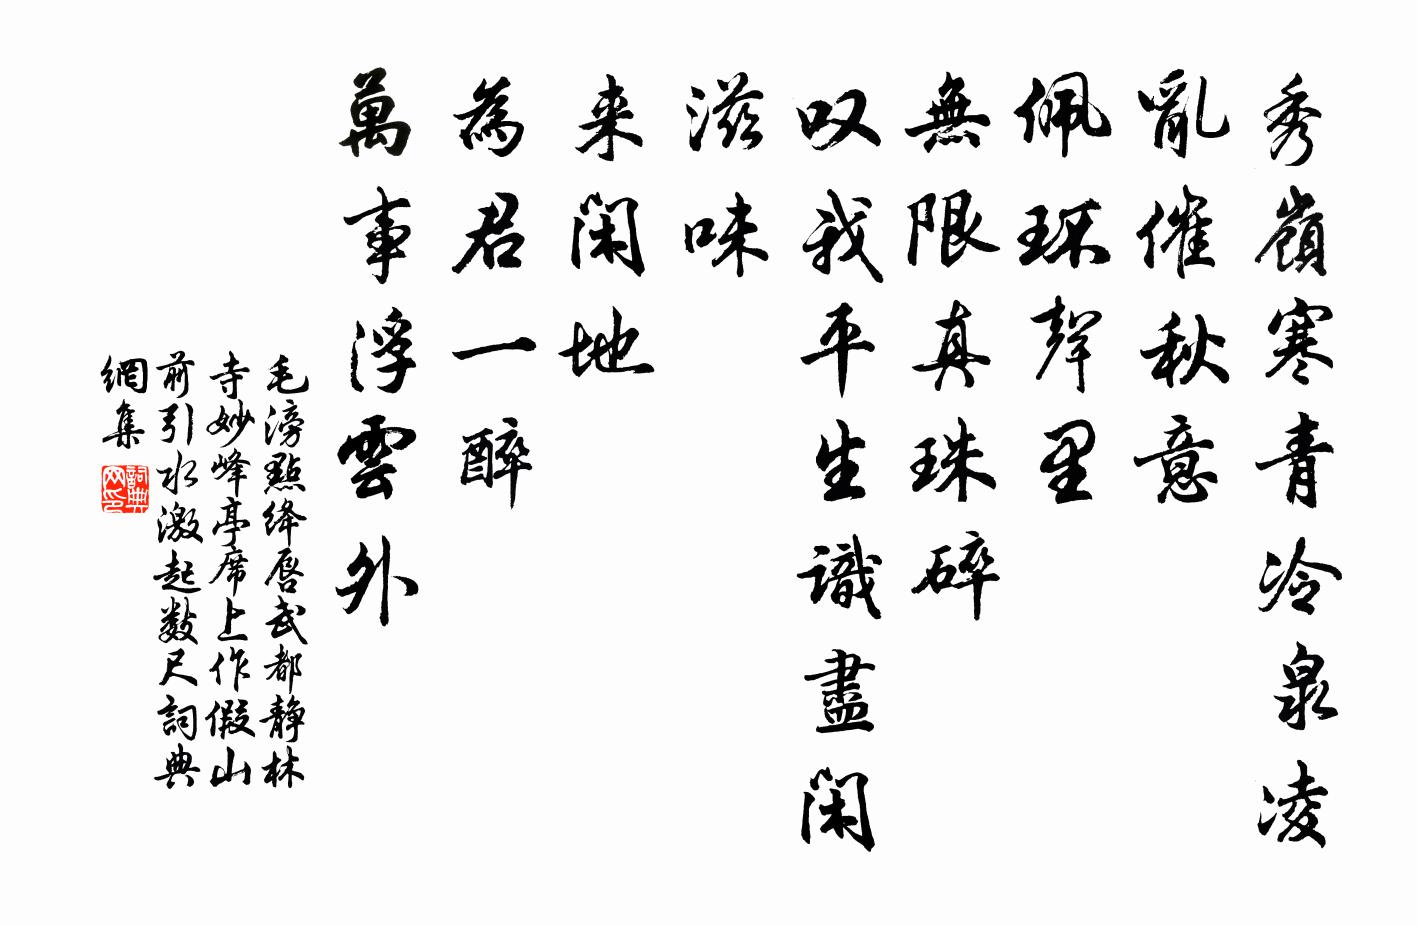 秀嶺寒青冷泉凌
亂催秋意
佩环聲里
無限真珠碎
叹我平生識盡闲
滋味
来闲地
為君一醉
萬事浮雲外
毛滂點绛唇武都静林
寺妙峰亭席上作假山
前引水激起数尺詞典
網集
詞典网印